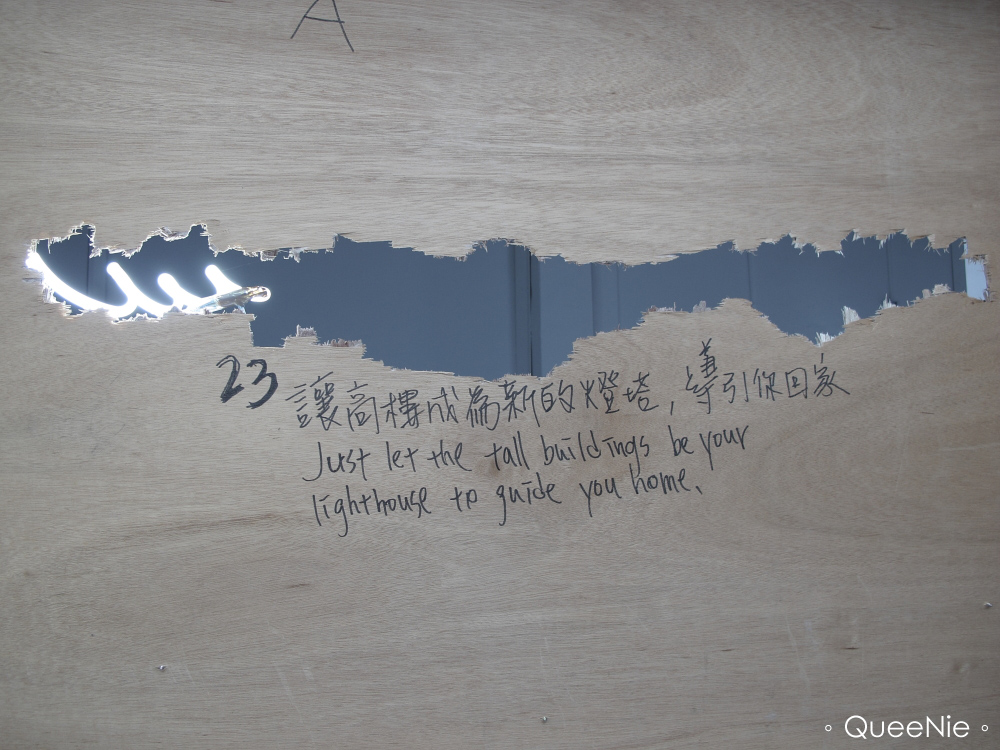 A
23 讓高樓成為新的燈塔，導引你回家
Just let the tall buildings be your
lighthouse to guide you home.
QueeNie